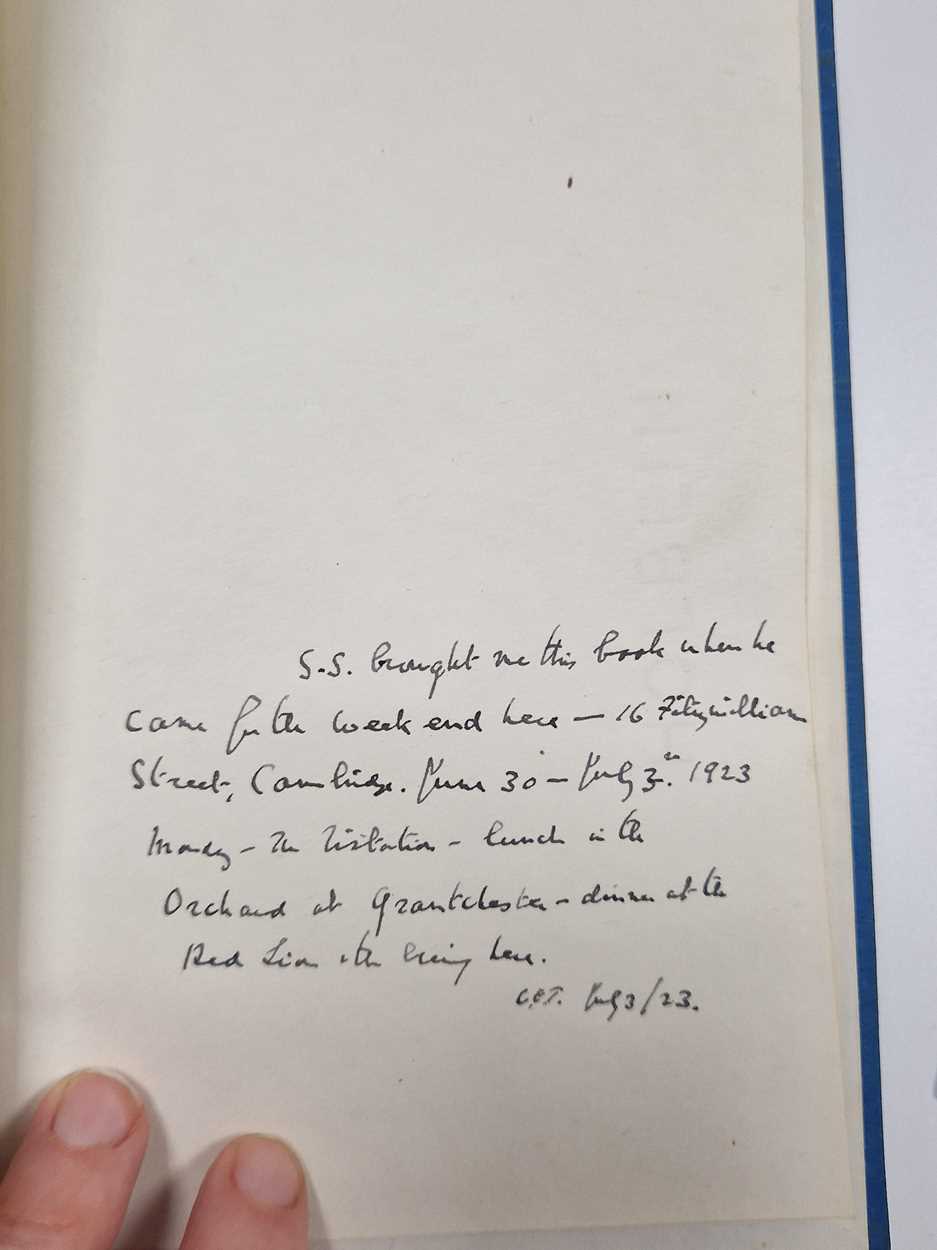 S.S. brought me this book when he
came for the week end here — 16 Fitzwilliam
Street, Cambridge. June 30 — July 3rd. 1923
Monday — The Visitation — lunch in the
Orchard at Grantchester — dinner at the
Red Lion &
here.
July 3/23.